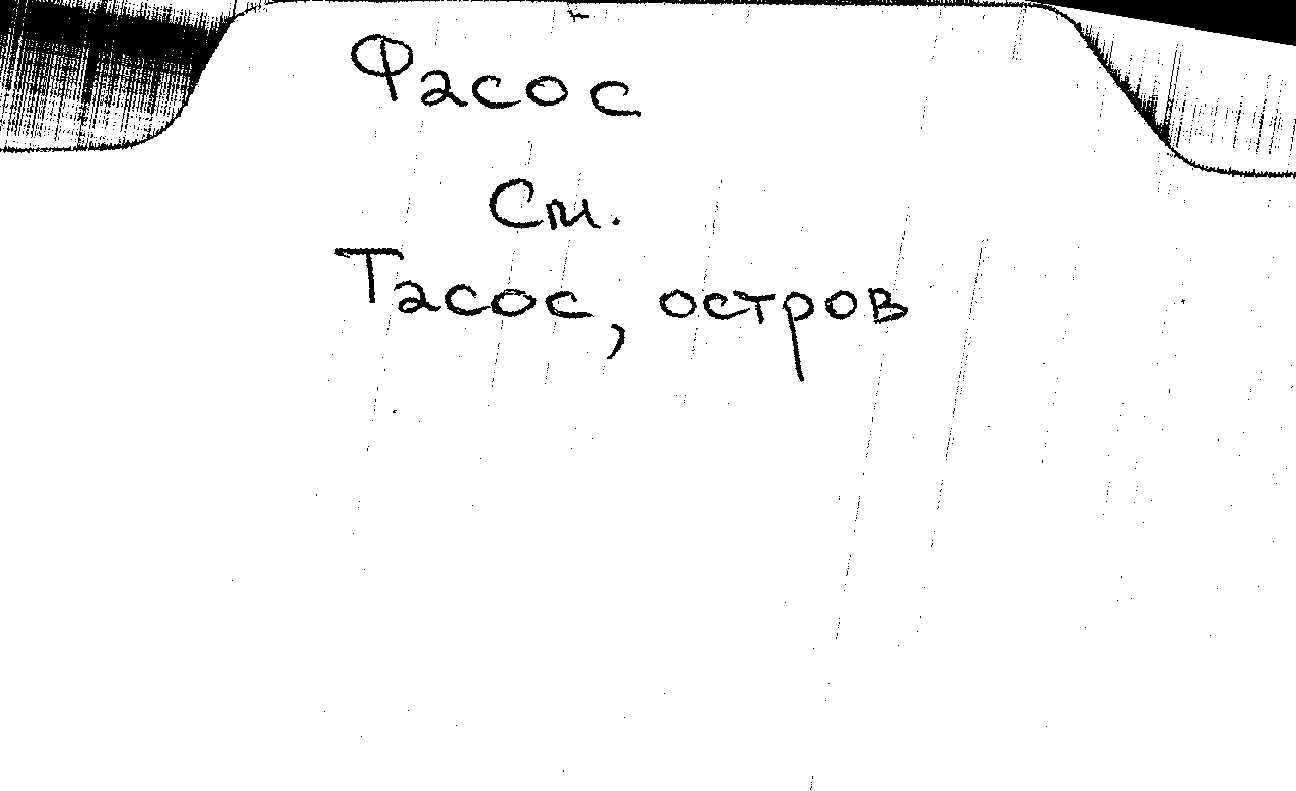 Фасос
См.
Тасос, остров